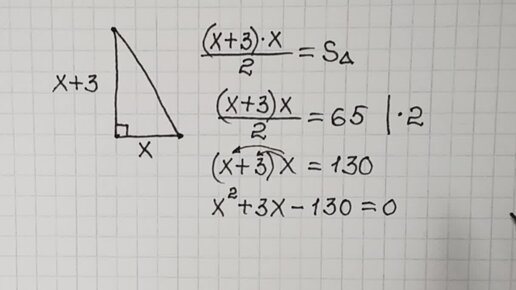 x+3
x
(x+3)·x/2 = S△
(x+3)x/2 = 65 |·2
(x+3)x = 130
x²+3x-130=0